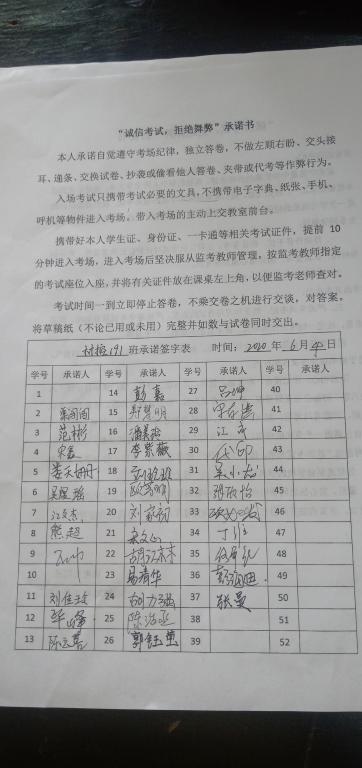 “诚信考试，拒绝舞弊”承诺书
本人承诺自觉遵守考场纪律，独立答卷，不做左顾右盼、交头接
耳、递条、交换试卷、抄袭或偷看他人答卷、夹带或代考等作弊行为。
入场考试只携带考试必要的文具，不携带电子字典、纸张、手机、
呼机等物件进入考场。带入考场的主动上交教室前台。
携带好本人学生证、身份证、一卡通等相关考试证件，提前 10
分钟进入考场，进入考场后坚决服从监考教师管理，按监考教师指定
的考试座位入座，并将有关证件放在课桌左上角，以便监考老师查对。
考试时间一到立即停止答卷，不乘交卷之机进行交谈，对答案。
将草稿纸（不论已用或未用）完整并如数与试卷同时交出。
191 班承诺签字表 时间：2020 年 6 月 日
学号 承诺人 学号 承诺人 学号 承诺人 学号 承诺人
1 14 彭嘉 27 吕坤 40
2 15 舒慧明 28 41
3 范彬 16 潘美玲 29 江 42
4 宋磊 17 李紫薇 30 43
5 娄天姆丹 18 31 吴小龙 44
6 吴隆裕 19 欧芳明 32 45
7 江文杰 20 刘家初 33 46
8 熊超 21 宋文心 34 丁 47
9 22 胡江 35 48
10 23 易清华 36 49
11 刘佳玫 24 37 张曼 50
12 25 陈治丞 38 51
13 陈云蓉 26 郭钰莹 39 52